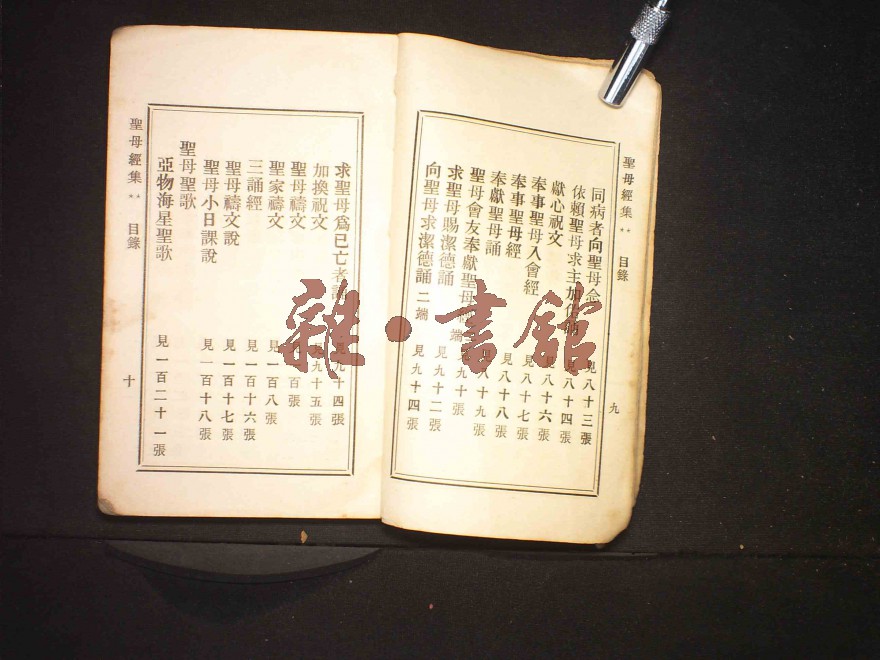 聖母經集 目錄 九
同病者向聖母念 見八十三張
依賴聖母求主加 見八十四張
獻心祝文 見八十六張
奉事聖母入會經 見八十七張
奉事聖母經 見八十八張
奉獻聖母誦 見八十九張
聖母會友奉獻聖母
求聖母賜潔德誦 端 見九十張
向聖母求潔德誦 二端 見九十二張
見九十四張
求聖母爲已亡者誦 見九十四張
加換祝文 見九十五張
聖母禱文 見百張
聖家禱文 見一百八張
三誦經 見一百十六張
聖母禱文說 見一百十七張
聖母小日課說 見一百十八張
聖母聖歌
亞物海星聖歌 見一百二十一張
聖母經集 目錄 十
雜·書館